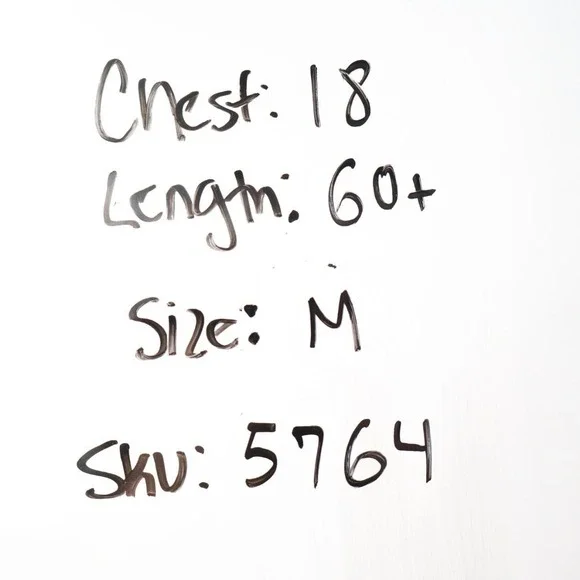 Chest: 18
Length: 60+
Size: M
Sku: 5764